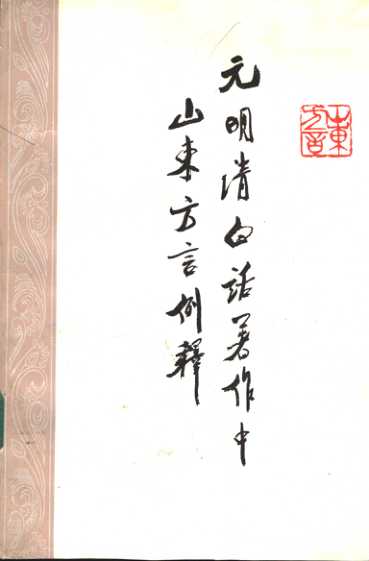 元明清白话著作中
山東方言例釋
山東方言